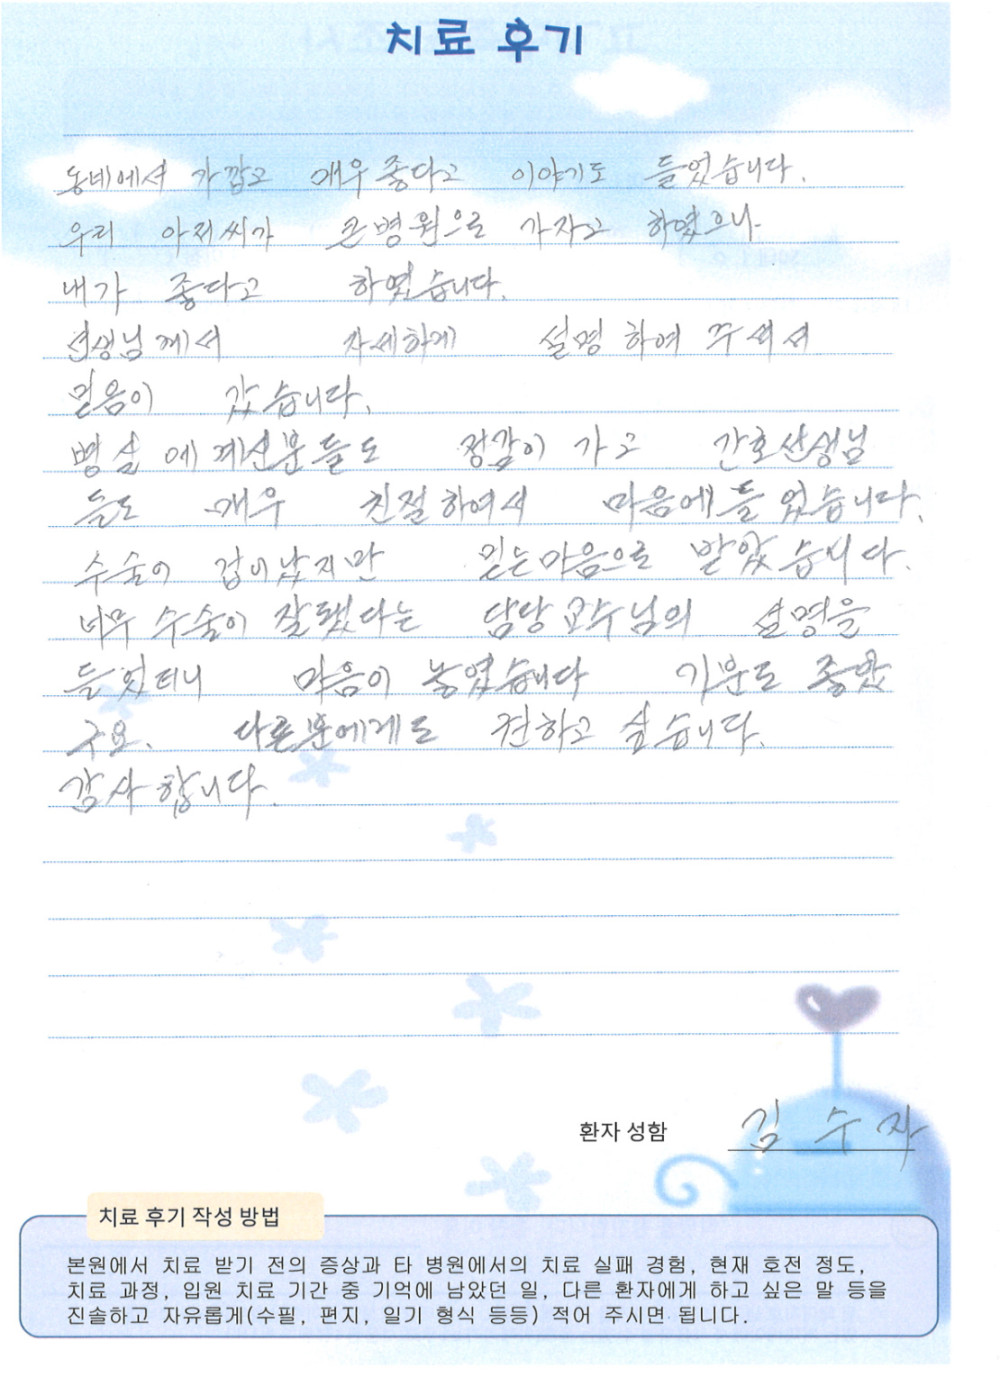 치료 후기
동네에서 가깝고 매우 좋다고 이야기도 들었습니다.
우리 아저씨가 큰병원으로 가자고 하였으나
내가 좋다고 하였습니다.
선생님께서 자세하게 설명하여 주셔서
믿음이 갔습니다.
병실에 계신분들도 정감이 가고 간호선생님
들도 매우 친절하여서 마음에 들었습니다.
수술이 겁이났지만 믿는마음으로 받았습니다.
너무 수술이 잘됐다는 담당교수님의 설명을
들었더니 마음이 놓였습니다 기분도 좋았
구요. 다른분에게도 권하고 싶습니다.
감사합니다.
환자 성함 김수자
치료 후기 작성 방법
본원에서 치료 받기 전의 증상과 타 병원에서의 치료 실패 경험, 현재 호전 정도,
치료 과정, 입원 치료 기간 중 기억에 남았던 일, 다른 환자에게 하고 싶은 말 등을
진솔하고 자유롭게(수필, 편지, 일기 형식 등등) 적어 주시면 됩니다.